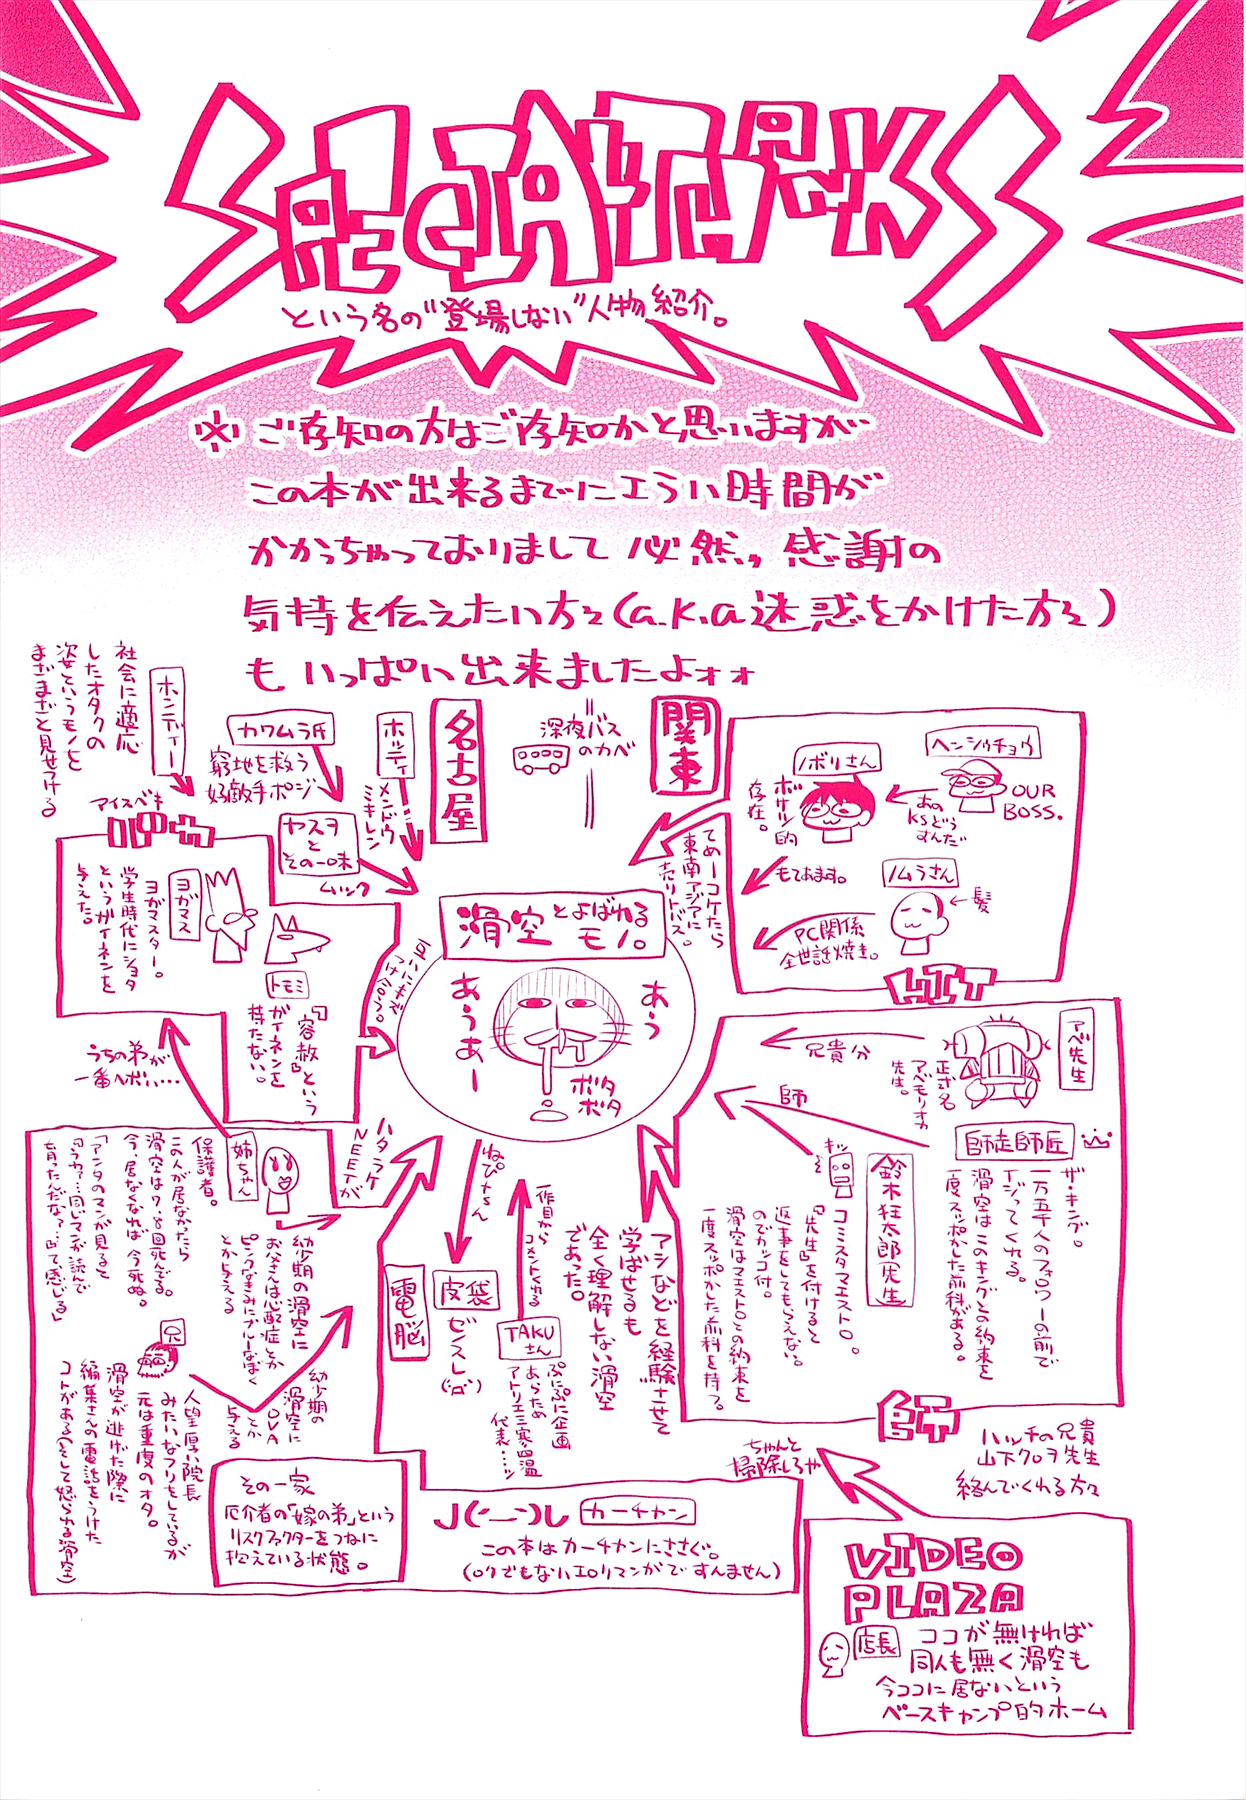 SPECIAL THANKS
という名の"登場しない"人物紹介。
※ご存知の方はご存知かと思いますが
この本が出来るまでにエラい時間が
かかっちゃっておりまして必然、感謝の
気持を伝えたい方々(a.k.a迷惑をかけた方々)
もいっぱい出来ましたよォォ
関東
深夜バス
のカベ
名古屋
ホッティ
メンドウ
ミキレン
カワムラ氏
窮地を救う
好敵手ポジ
ホンディー
社会に適応
したオタクの
姿というモノを
まざまざと見せつける
ヤスヲ
と
その一味
ムック
アイスベキ
ヨガマス
ヨガマスター。
学生時代にショタ
というガイネンを
与えた。
トモミ
『容赦』という
ガイネンを
持たない。
うちの弟が
一番ヘボい…
ヘンシュウチョウ
OUR
BOSS.
あの
KSどう
すんだ
ノボリさん
ボサツ的
存在。
もてあます。
ノムラさん
髪
PC関係
全世話焼き。
てめーコケたら
東南アジアに
売りトバス。
HIT
滑空とよばれる
モノ。
あう
あうあー
ボタ
ボタ
アベ先生
兄貴分
正式名
アベモリオカ
先生。
師
師走師匠
ザ・キング。
一万五千人のフォロワーの前で
イジってくれる。
滑空はこのキングとの約束を
一度スッポかした前科がある。
キッ
鈴木狂太郎先生
コミスタマエストロ。
『先生』を付けると
返事をしてもらえない
のでカッコ付。
滑空はマエストロとの約束を
一度スッポかした前科を持つ。
師
ハッチの兄貴
山下クロヲ先生
絡んでくれる方々
アシなどを経験させて
学ばせるも
全く理解しない滑空
であった。
一作目から
コメントくれる
TAKU
さん
ぷにぷに企画
あらため
アトリエ三寒四温
代表…ッ
ねぴりさん
皮袋
ゼンスレ
電脳
ハタラケ
NEETが
姉ちゃん
保護者。
この人が居なかったら
滑空は7、8回死んでる。
今、居なくなれば今死ぬ。
「アンタのマンガ見ると
『うわァ…同じマンガ読んで
育ったんだな?』って感じる」
幼少期の滑空に
お父さんは心配症とか
ピンクなきみにブルーなぼく
とか与える
兄
人望厚い院長
みたいなフリをしているが
元は重度のオタ。
滑空が逃げた際に
編集さんの電話をうけた
コトがある(そして怒られる滑空)
幼少期の
滑空に
OVA
とか
与える
その一家
厄介者の「嫁の弟」という
リスクファクターをつねに
抱えている状態。
J('ー`)し カーチャン
この本はカーチャンにささぐ。
(ロクでもないエロマンガですんません)
ちゃんと
掃除しろや
VIDEO
PLAZA
店長
ココが無ければ
同人も無く滑空も
今ココに居ないという
ベースキャンプ的ホーム